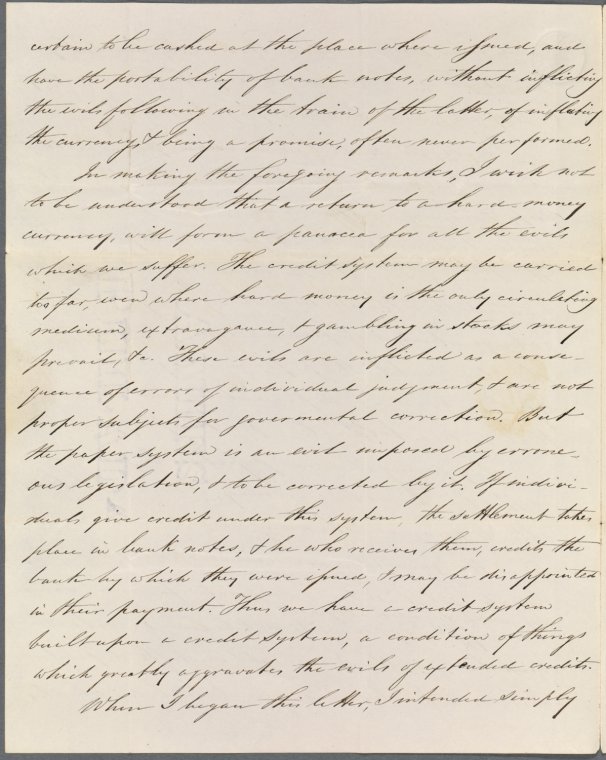 certain to be cashed at the place where issued, and
have the portability of bank notes, without inflicting
the evils following in the train of the latter, of inflating
the currency, & being a promise, often never performed.
In making the foregoing remarks, I wish not
to be understood that a return to a hard money
currency, will form a panacea for all the evils
which we suffer. The credit system may be carried
too far, even where hard money is the only circulating
medium, extravagance, & gambling in stocks may
prevail, &c. These evils are inflicted as a conse-
quence of errors of individual judgment, & are not
proper subjects for govermental correction. But
the paper system is an evil imposed by errone-
ous legislation, & to be corrected by it. If indivi-
duals give credit under this system, the settlement takes
place in bank notes, & he who receives them, credits the
bank by which they were issued, & may be disappointed
in their payment. Thus we have a credit system
built upon a credit system, a condition of things
which greatly aggravates the evils of extended credits.
When I began this letter, I intended simply